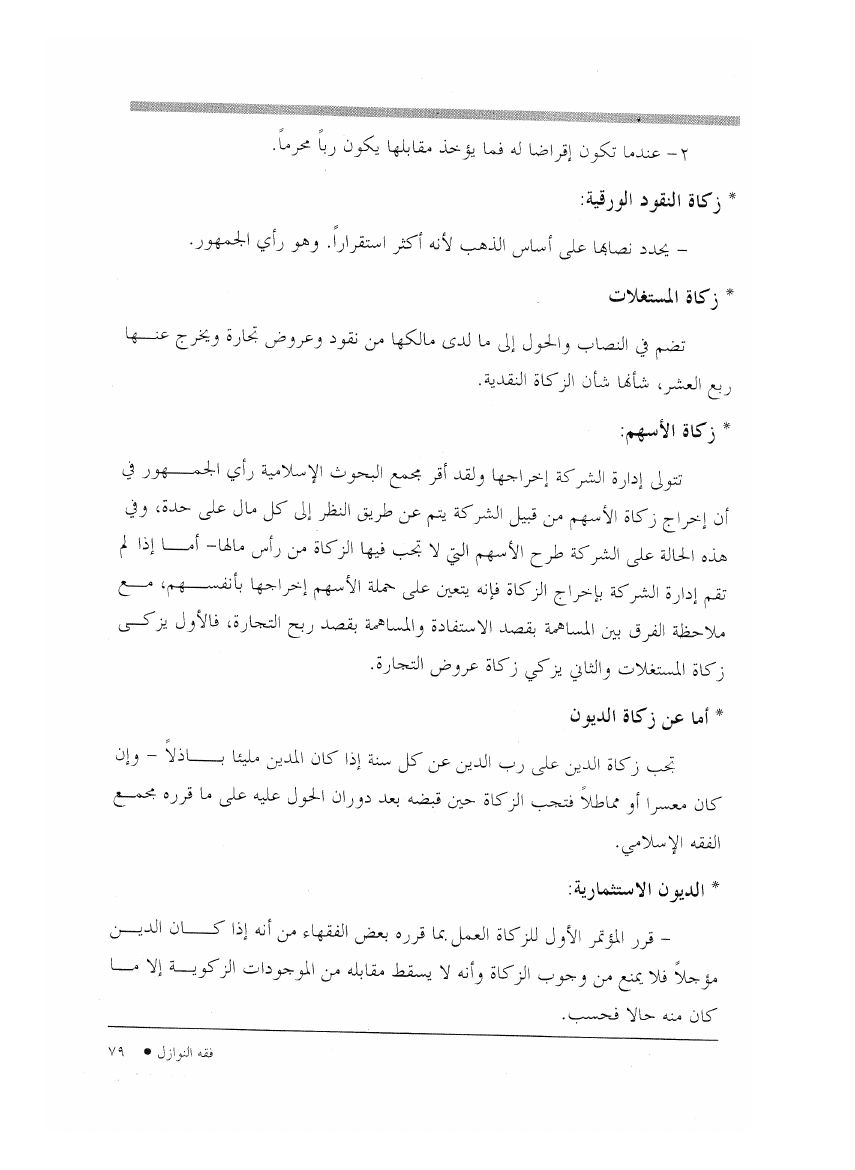 ٢- عندما تكون إقراضا له فما يؤخذ مقابلها يكون رباً محرماً.
* زكاة النقود الورقية:
- يحدد نصابها على أساس الذهب لأنه أكثر استقراراً. وهو رأي الجمهور.
* زكاة المستغلات
تضم في النصاب والحول إلى ما لدى مالكها من نقود وعروض تجارة ويخرج عنها
ربع العشر، شأنها شأن الزكاة النقدية.
* زكاة الأسهم:
تتولى إدارة الشركة إخراجها ولقد أقر مجمع البحوث الإسلامية رأي الجمهور في
أن إخراج زكاة الأسهم من قبيل الشركة يتم عن طريق النظر إلى كل مال على حدة، وفي
هذه الحالة على الشركة طرح الأسهم التي لا تجب فيها الزكاة من رأس مالها- أما إذا لم
تقم إدارة الشركة بإخراج الزكاة فإنه يتعين على حملة الأسهم إخراجها بأنفسهم، مع
ملاحظة الفرق بين المساهمة بقصد الاستفادة والمساهمة بقصد ربح التجارة، فالأول يزكى
زكاة المستغلات والثاني يزكي زكاة عروض التجارة.
* أما عن زكاة الديون
تجب زكاة الدين على رب الدين عن كل سنة إذا كان المدين مليئا باذلاً - وإن
كان معسرا أو مماطلاً فتجب الزكاة حين قبضه بعد دوران الحول عليه على ما قرره مجمع
الفقه الإسلامي.
* الديون الاستثمارية:
- قرر المؤتمر الأول للزكاة العمل بما قرره بعض الفقهاء من أنه إذا كان الدين
مؤجلاً فلا يمنع من وجوب الزكاة وأنه لا يسقط مقابله من الموجودات الزكوية إلا ما
كان منه حالا فحسب.
فقه النوازل ● ٧٩